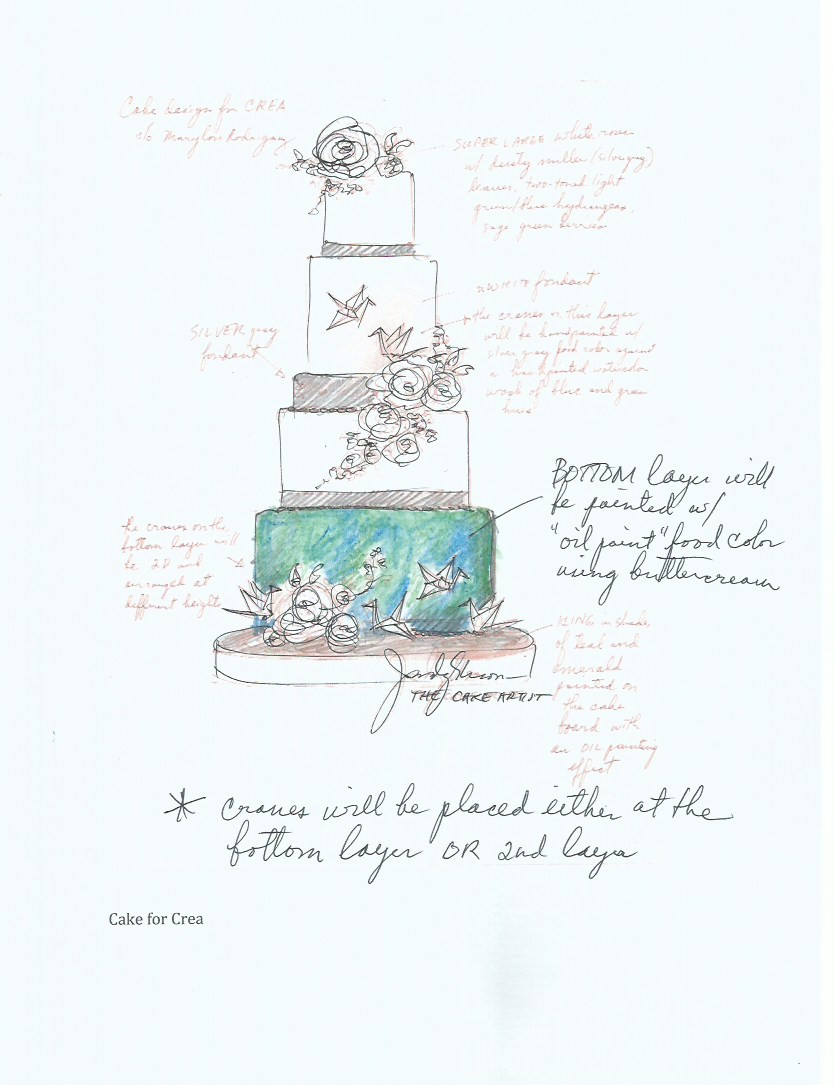 Cake design for CREA
c/o Marylou Rodriguez
SUPER LARGE white rose
w/ dusty miller (silvergray)
leaves, two-toned light
green/blue hydrangeas,
sage green berries
WHITE fondant
the cranes on this layer
will be handpainted w/
silver gray food color against
a handpainted watercolor
wash of blue and green
hues
SILVER gray
fondant
BOTTOM layer will
be painted w/
"oil paint" food color
using buttercream
the cranes on the
bottom layer will
be 3D and
arranged at
different height
ICING in shades
of teal and
emerald
painted on
the cake
board with
an OIL painting
effect
THE CAKE ARTIST
* cranes will be placed either at the
bottom layer OR 2nd layer
Cake for Crea